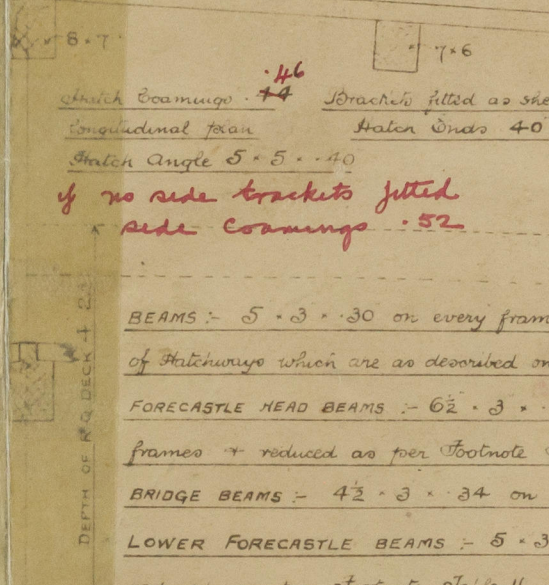 8 × 7
7 × 6
Hatch Coamings .44 .46
Brackets fitted as she
longitudinal plan
Hatch Ends 40
Hatch Angle 5 × 5 × .40
if no side brackets fitted
side Coamings .52
BEAMS :- 5 × 3 × .30 on every fram
of Hatchways which are as described on
FORECASTLE HEAD BEAMS :- 6½ × 3 ×
frames + reduced as per Footnote
BRIDGE BEAMS :- 4½ × 3 × .34 on
LOWER FORECASTLE BEAMS :- 5 × 3
DEPTH OF R.Q. DECK 4